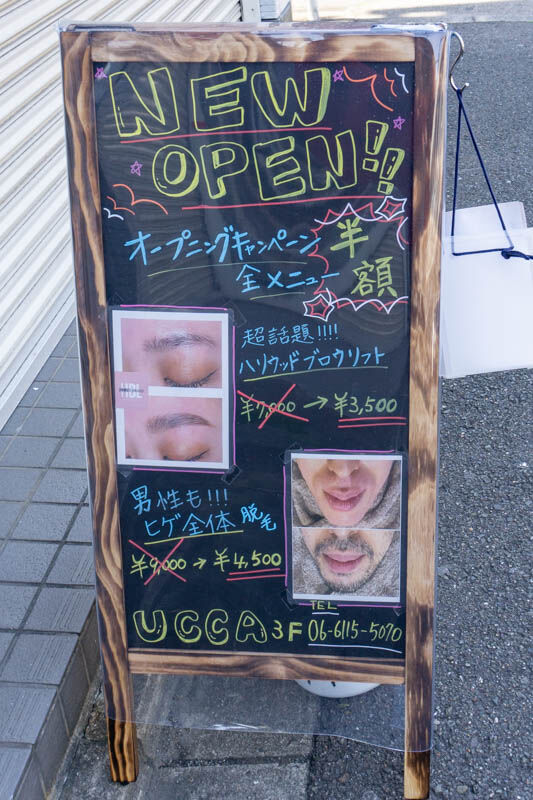 NEW
OPEN!!
オープニングキャンペーン
全メニュー
半額
超話題!!!!
ハリウッドブロウリフト
¥7,000→¥3,500
HBL
男性も!!!
ヒゲ全体脱毛
¥9,000→¥4,500
TEL
UCCA 3F 06-6115-5070